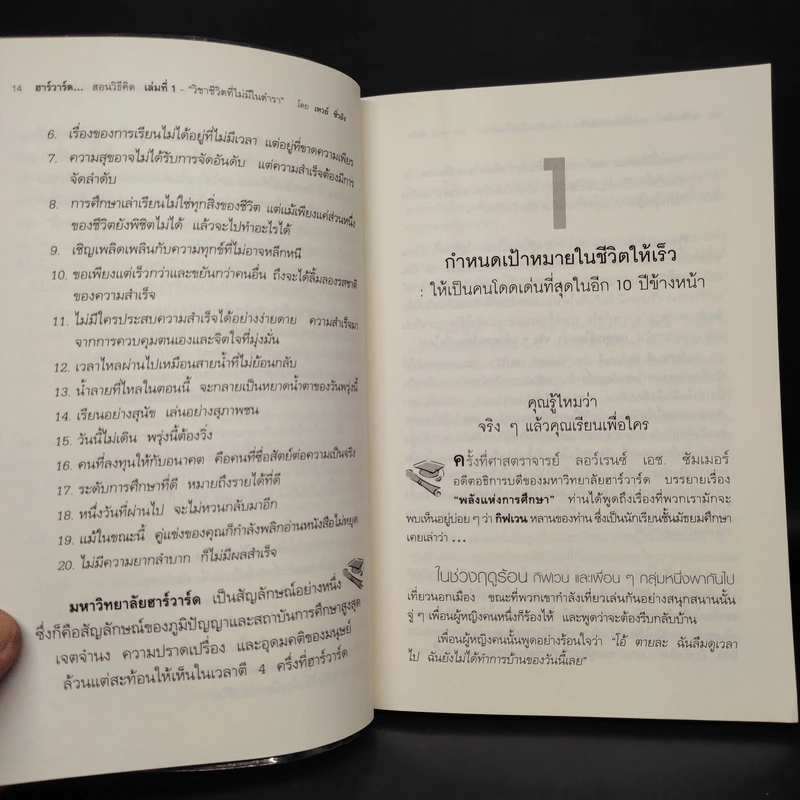 14 ฮาร์วาร์ด... สอนวิธีคิด เล่มที่ 1 - "วิชาชีวิตที่ไม่มีในตำรา" โดย เหวย์ ซิ่วอิง
6. เรื่องของการเรียนไม่ได้อยู่ที่ไม่มีเวลา แต่อยู่ที่ขาดความเพียร
7. ความสุขอาจไม่ได้รับการจัดอันดับ แต่ความสำเร็จต้องมีการ
จัดลำดับ
8. การศึกษาเล่าเรียนไม่ใช่ทุกสิ่งของชีวิต แต่แม้เพียงแค่ส่วนหนึ่ง
ของชีวิตยังพิชิตไม่ได้ แล้วจะไปทำอะไรได้
9. เชิญเพลิดเพลินกับความทุกข์ที่ไม่อาจหลีกหนี
10. ขอเพียงแต่เร็วกว่าและขยันกว่าคนอื่น ถึงจะได้ลิ้มลองรสชาติ
ของความสำเร็จ
11. ไม่มีใครประสบความสำเร็จได้อย่างง่ายดาย ความสำเร็จมา
จากการควบคุมตนเองและจิตใจที่มุ่งมั่น
12. เวลาไหลผ่านไปเหมือนสายน้ำที่ไม่ย้อนกลับ
13. น้ำลายที่ไหลในตอนนี้ จะกลายเป็นหยาดน้ำตาของวันพรุ่งนี้
14. เรียนอย่างสุนัข เล่นอย่างสุภาพชน
15. วันนี้ไม่เดิน พรุ่งนี้ต้องวิ่ง
16. คนที่ลงทุนให้กับอนาคต คือคนที่ซื่อสัตย์ต่อความเป็นจริง
17. ระดับการศึกษาที่ดี หมายถึงรายได้ที่ดี
18. หนึ่งวันที่ผ่านไป จะไม่หวนกลับมาอีก
19. แม้ในขณะนี้ คู่แข่งของคุณก็กำลังพลิกอ่านหนังสือไม่หยุด
20. ไม่มีความยากลำบาก ก็ไม่มีผลสำเร็จ
มหาวิทยาลัยฮาร์วาร์ด เป็นสัญลักษณ์อย่างหนึ่ง
ซึ่งก็คือสัญลักษณ์ของภูมิปัญญาและสถาบันการศึกษาสูงสุด
เจตจำนง ความปราดเปรื่อง และอุดมคติของมนุษย์
ล้วนแต่สะท้อนให้เห็นในเวลาตี 4 ครึ่งที่ฮาร์วาร์ด
1
กำหนดเป้าหมายในชีวิตให้เร็ว
: ให้เป็นคนโดดเด่นที่สุดในอีก 10 ปีข้างหน้า
คุณรู้ไหมว่า
จริง ๆ แล้วคุณเรียนเพื่อใคร
ครั้งที่ศาสตราจารย์ ลอว์เรนซ์ เอช. ซัมเมอร์
อดีตอธิการบดีของมหาวิทยาลัยฮาร์วาร์ด บรรยายเรื่อง
"พลังแห่งการศึกษา" ท่านได้พูดถึงเรื่องที่พวกเรามักจะ
พบเห็นอยู่บ่อย ๆ ว่า กิฟเวน หลานของท่าน ซึ่งเป็นนักเรียนชั้นมัธยมศึกษา
เคยเล่าว่า ...
ในช่วงฤดูร้อน กิฟเวน และเพื่อน ๆ กลุ่มหนึ่งพากันไป
เที่ยวนอกเมือง ขณะที่พวกเขากำลังเที่ยวเล่นกันอย่างสนุกสนานนั้น
จู่ ๆ เพื่อนผู้หญิงคนหนึ่งก็ร้องไห้ และพูดว่าจะต้องรีบกลับบ้าน
เพื่อนผู้หญิงคนนั้นพูดอย่างร้อนใจว่า "โอ้ ตายละ ฉันลืมดูเวลา
ไป ฉันยังไม่ได้ทำการบ้านของวันนี้เลย"